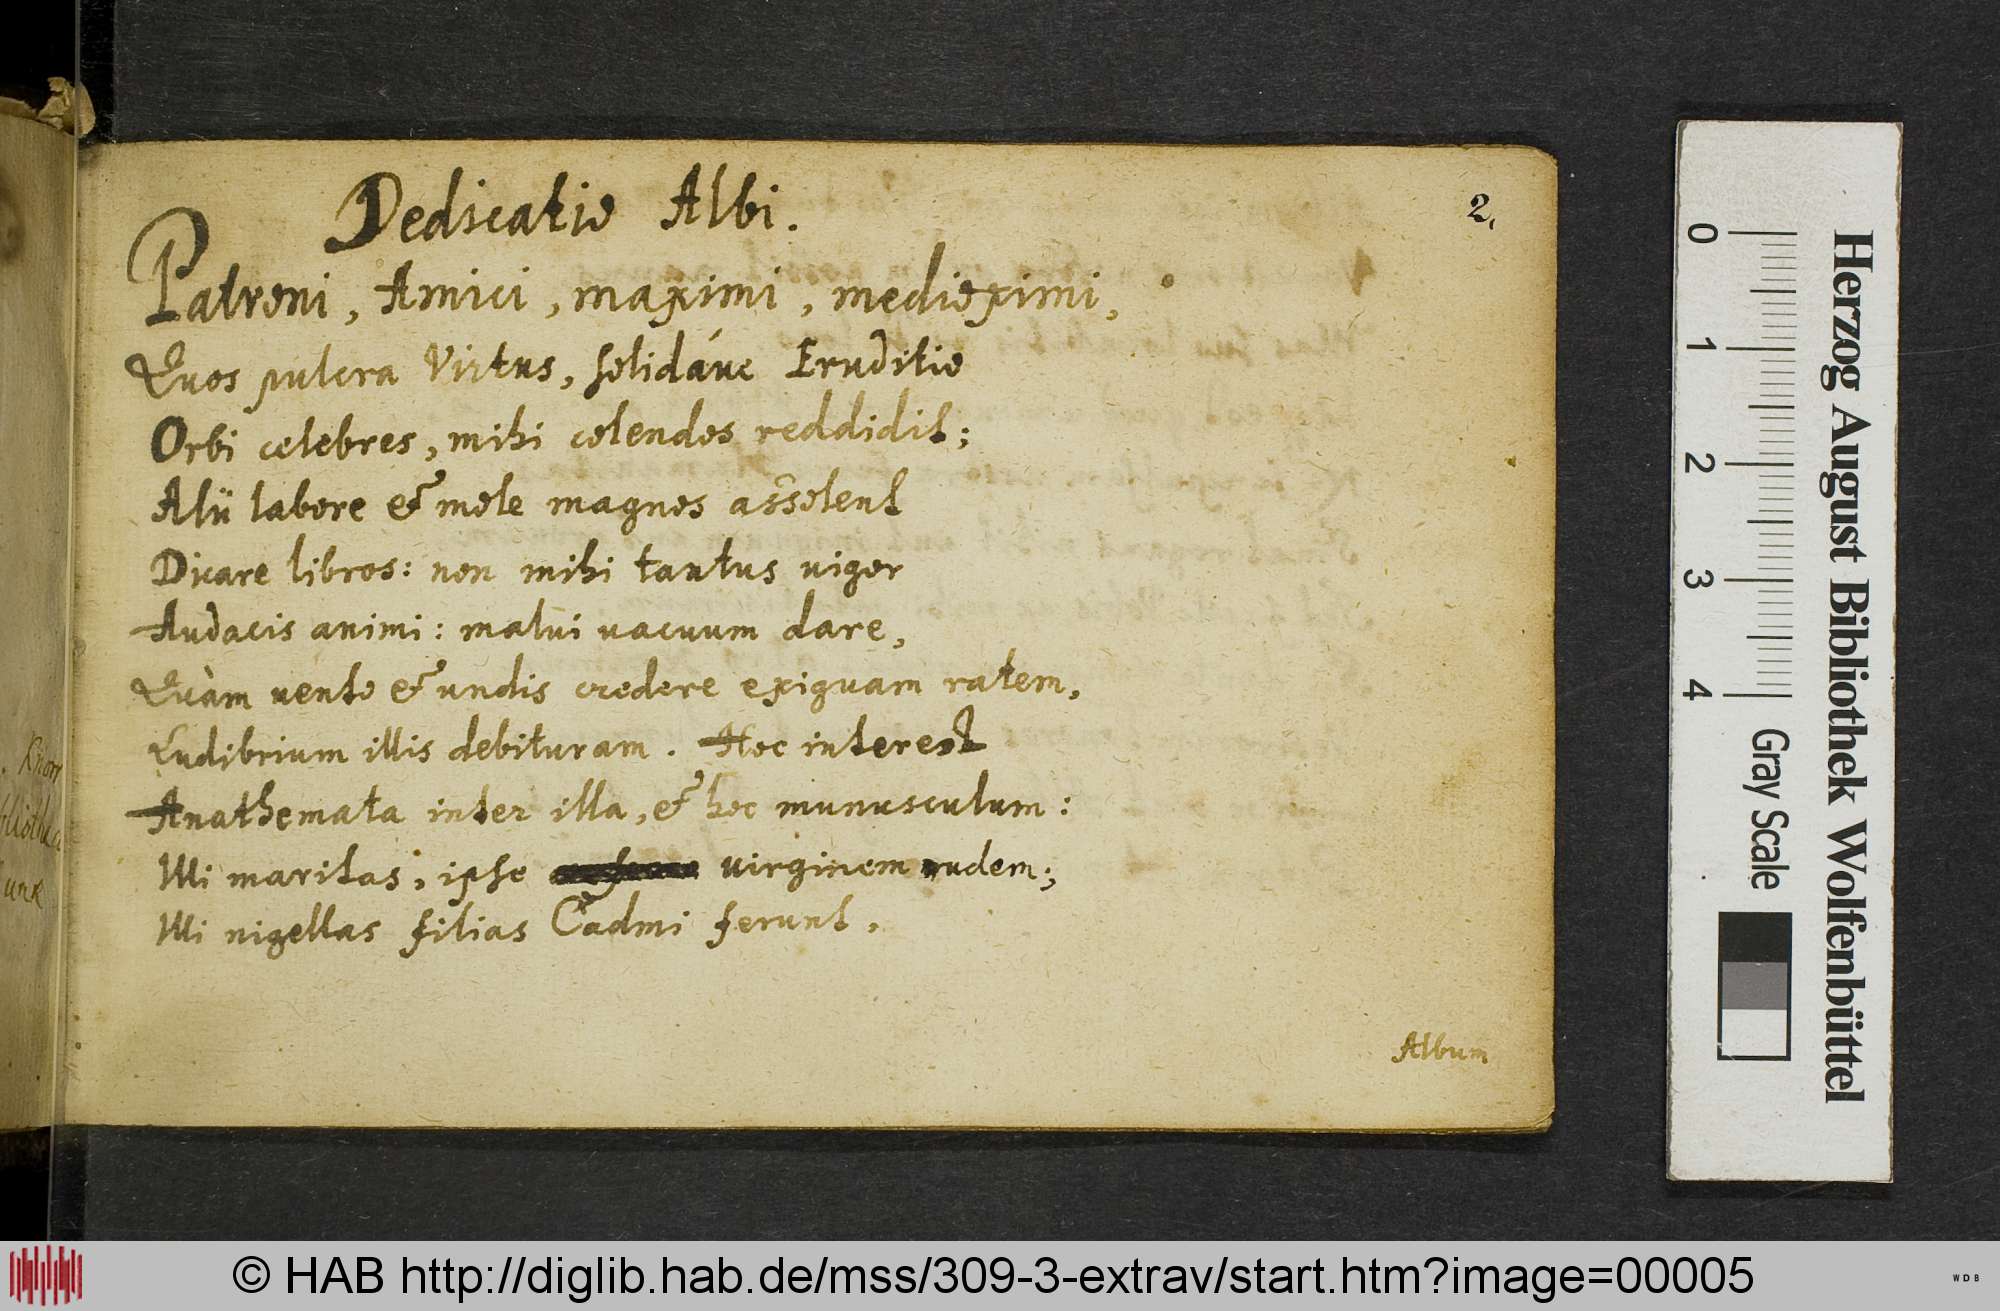 Dedicatio Albi.
2.
Patroni, Amici, maximi, medioximi,
Quos pulcra Virtus, solidáue Eruditio
Orbi celebres, mihi colendos reddidit;
Alii labore & mole magnos assolent
Dicare libros: non mihi tantus uigor
Audacis animi: malui uacuum dare,
Quàm uento & undis credere exiguam ratem,
Ludibrium illis debituram. Hoc interest
Anathemata inter illa, & hoc munusculum:
Illi maritas, ipse uirginem rudem;
Illi nigellas filias Cadmi ferunt,
Album
Knorr
0 1 2 3 4
Gray Scale
Herzog August Bibliothek Wolfenbüttel
© HAB http://diglib.hab.de/mss/309-3-extrav/start.htm?image=00005
WDB